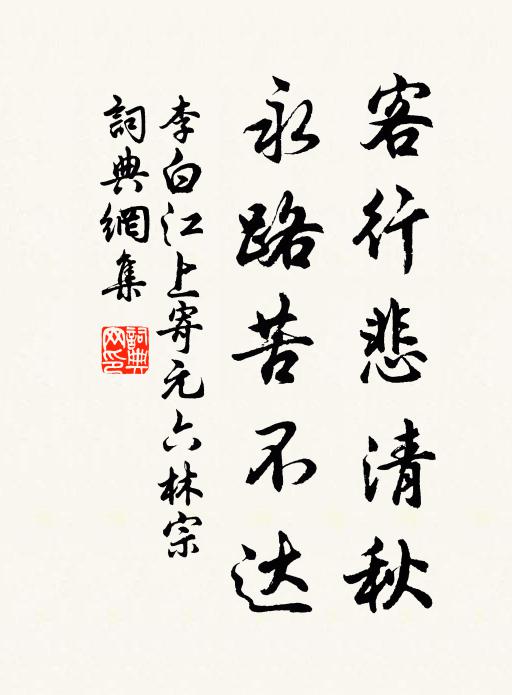 客行悲清秋
永路苦不达
李白江上寄元六林宗
詞典網集
詞典網印